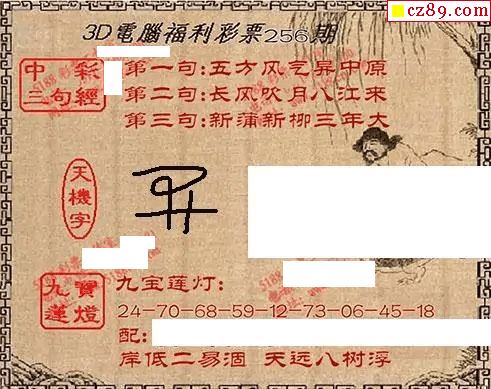 cz89.com
3D電腦福利彩票256期
中彩三句經
第一句:五方风气异中原
第二句:长风吹月八江來
第三句:新蒲新柳三年大
天機字
九寶蓮燈
九宝莲灯:
24-70-68-59-12-73-06-45-18
配:
岸低二易涸 天远八树浮